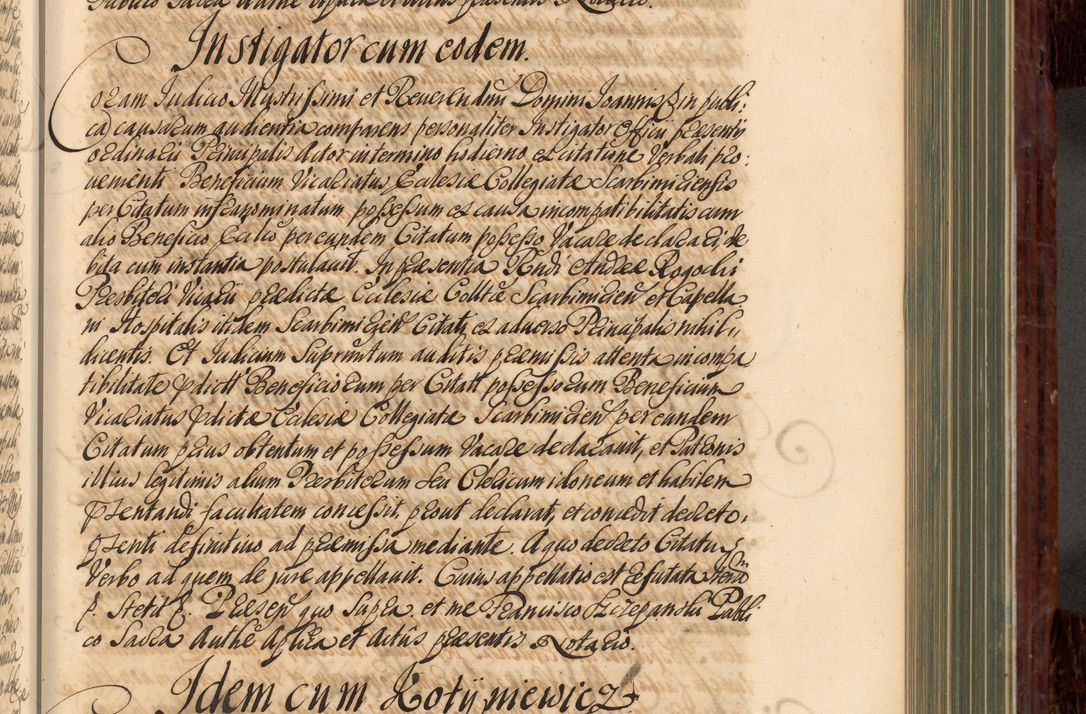 Publico Sacra Authe Aplica et actus presentis Notario.
Instigator cum eodem.
Coram Iudicio Illustrissimi et Reverendmi Domini Ioannis in publi:
ca causarum audientia comparens personaliter Instigator Officii presentis
ordinarii Principalis Actor in termino hodierno ex citatione Verbali pro:
venienti Beneficium Vicariatus Ecclesiæ Collegiatæ Scarbimiriensis
per Citatum infranominatum possessum ex causa incompatibilitatis cum
alio Beneficio Ecclico per eundem Citatum possesso Vacare declarari de
bita cum instantia postulavit. In presentia Rndi Andreæ Rogochi
Presbiteri Vicarii prædictæ Ecclesiæ Colltæ Scarbimirien et Capella
ni Hospitalis itidem Scarbimirien Citati ex adverso Principalis nihil
dicentis. Et Iudicium Supruntum auditis præmissis attenta incompa
tibilitate pdictt Beneficiorum per Citatt possessorum Beneficium
Vicariatus pdictæ Ecclesiæ Collegiatæ Scarbimirien per eundem
Citatum prius obtentum et possessum Vacare declaravit, et Patronis
illius legitimis alium Presbiterum seu Clericum idoneum et habilem
psentandi facultatem concessit, prout declarat, et concedit decreto
psenti definitivo ad præmissa mediante. A quo decreto Citatus
Verbo ad quem de jure appellavit. Cuius appellatio est refutata
p. Stetit p. Presen quo supra et me Francisco Publi
co Sacra Authe Aplica et actus præsentis Notario.
Idem cum Kotyniewicz